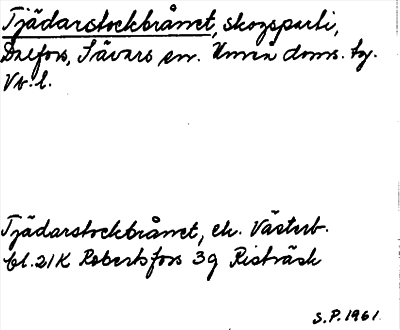 Tjädarstockbrånet, skogsparti,
Dalfors, Sävars sn. Umeå doms. tg.
Vb. l.
Tjädarstockbrånet, ek. Västerb.
bl. 21K Robertsfors 3g Risträsk
S.P. 1961